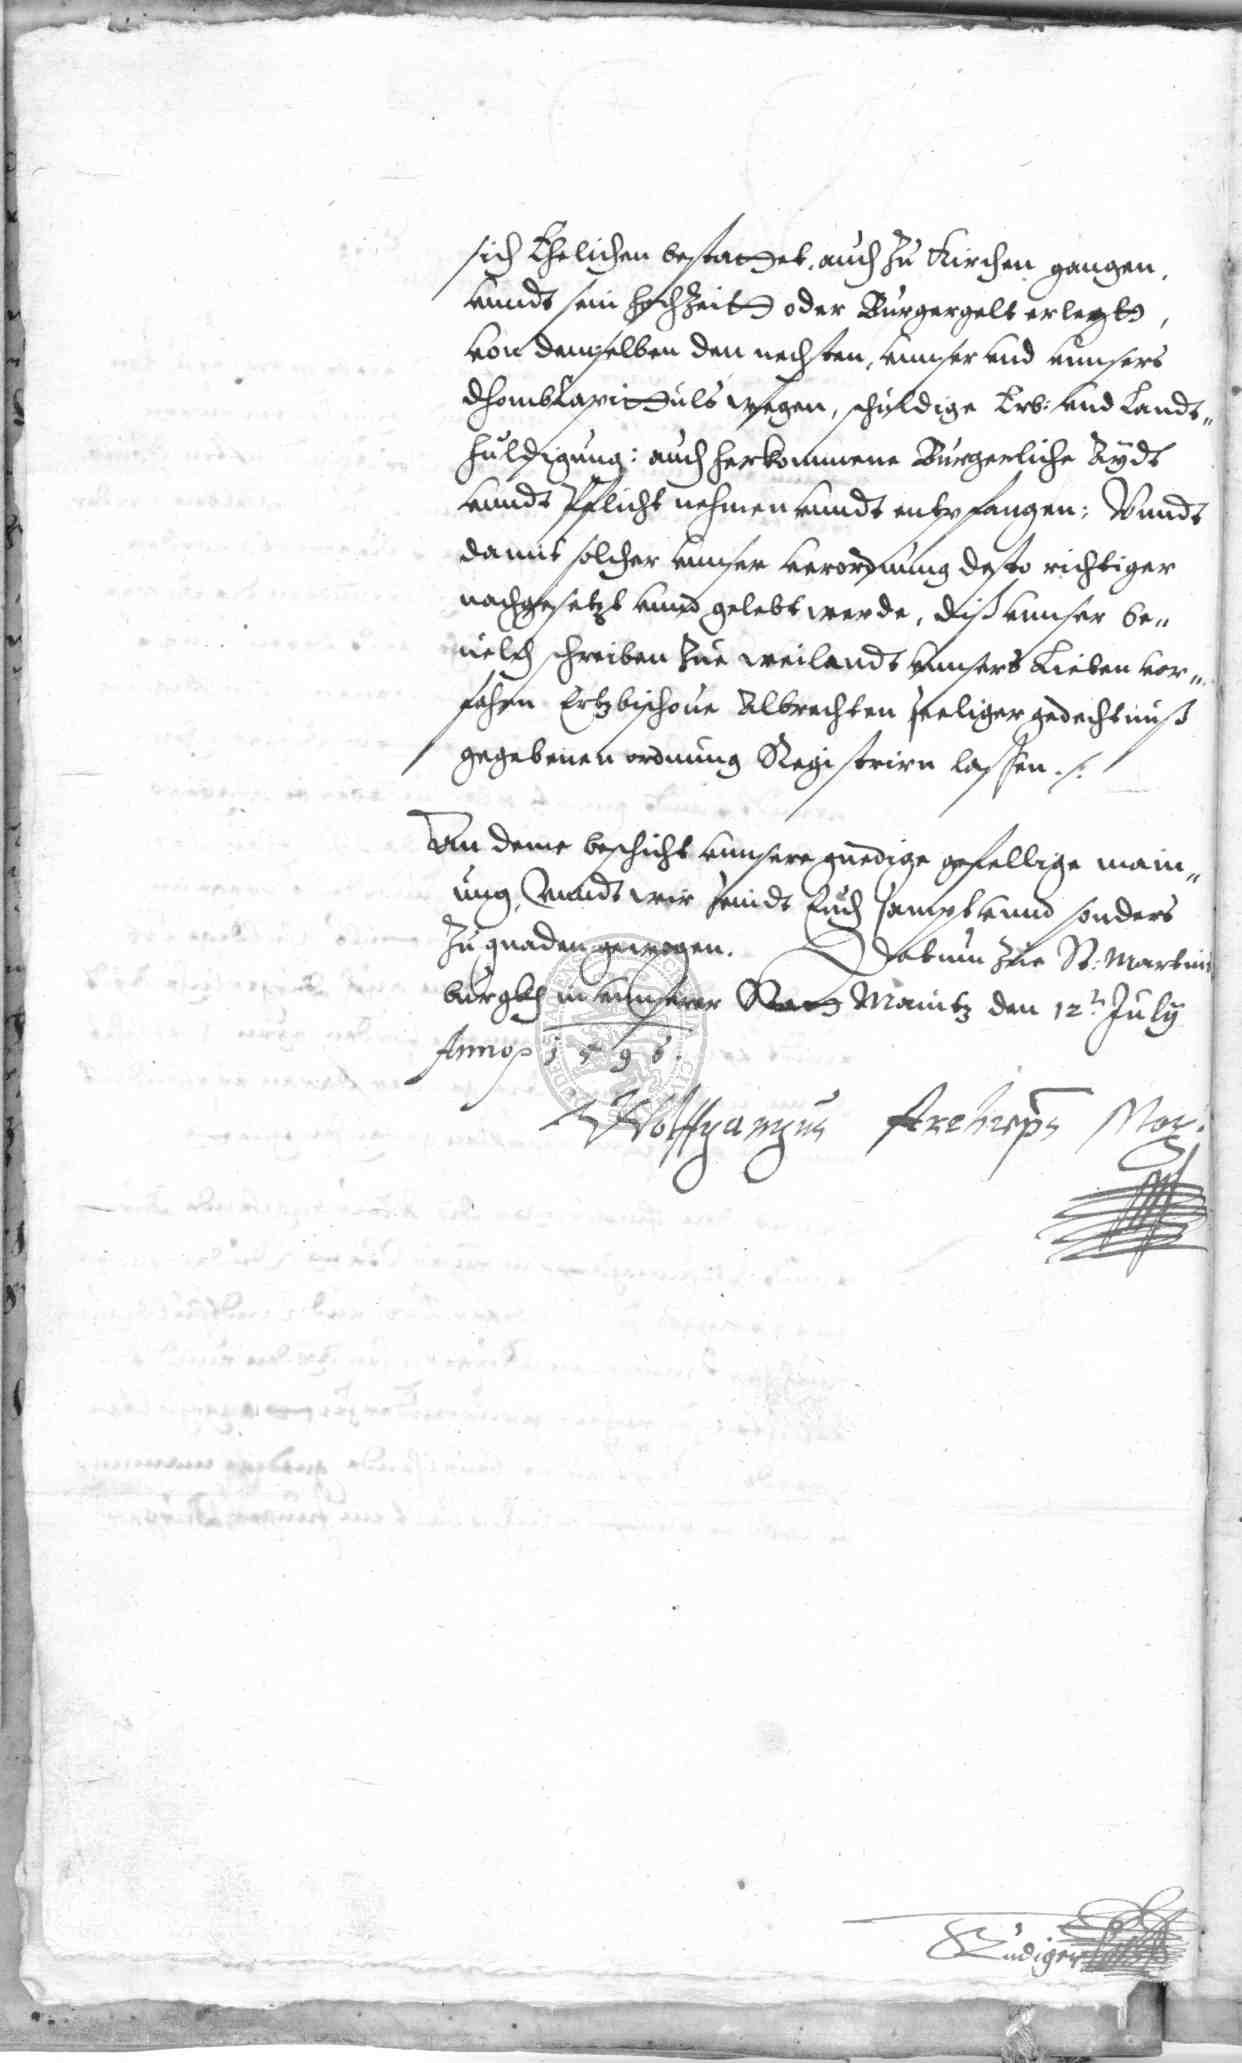 sich Ehelichen bestattet, auch zu Kirchen gangen,
vnndt sein hochzeitt oder Burgergelt erlegtt,
von demselben den nechsten, vnnser vnd vnnsers
dhombCapittuls wegen, schuldige Erb: vnd Landts„
huldigung: auch herkommene Burgerliche Aÿdt
vnndt Pflicht nehmen vnndt entpfangen: Vnndt
damit solcher vnnser verordnung desto richtiger
nachgesetzt vnnd gelebt werde, diß vnnser be„
uelch schreiben zue weilandt vnnsers Lieben vor„
fahrn Ertzbischoue Albrechten seeliger gedechtnuß
gegebenen ordnung Registrirn lassen ./.
An deme beschicht vnnsere gnedige gefellige main„
ung, Vnndt wir seindt Euch sampt vnnd sonders
zu gnaden gewogen. Datum zue St: Martins
burgkh in vnnserer Statt Maintz den 12t July
Anno p 1596.
Wolffgangus Archieps Mog:
Rüdiger